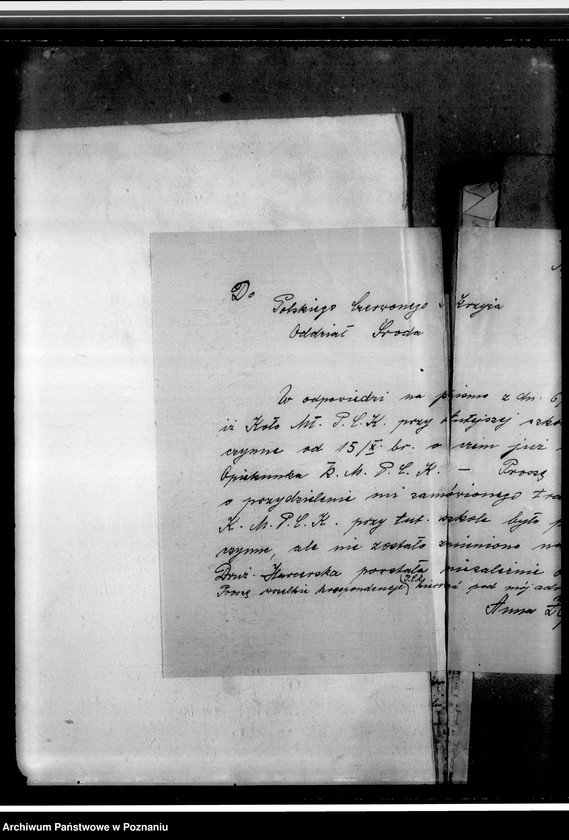 Do
Polskiego Czerwonego Krzyża
Oddział Środa
W odpowiedzi na pismo z dn. 6
iż Koło Mł. P.C.K. przy tutejszej szko
czynne od 15/X. br. o czem już
Opiekunka K. M. P. C. K. — Proszę
o przydzielenie mi zamówionego
K. M. P. C. K. przy tut. szkole było
czynne, ale nie zostało zmienione na
Druż. Harcerska powstała niezależnie
Proszę wszelkie korespondencje P.C.K. kierować pod mój adr
Anna
Archiwum Państwowe w Poznaniu